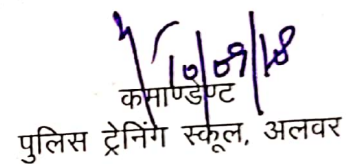 10/09/18
कमाण्डेण्ट
पुलिस ट्रेनिंग स्कूल, अलवर